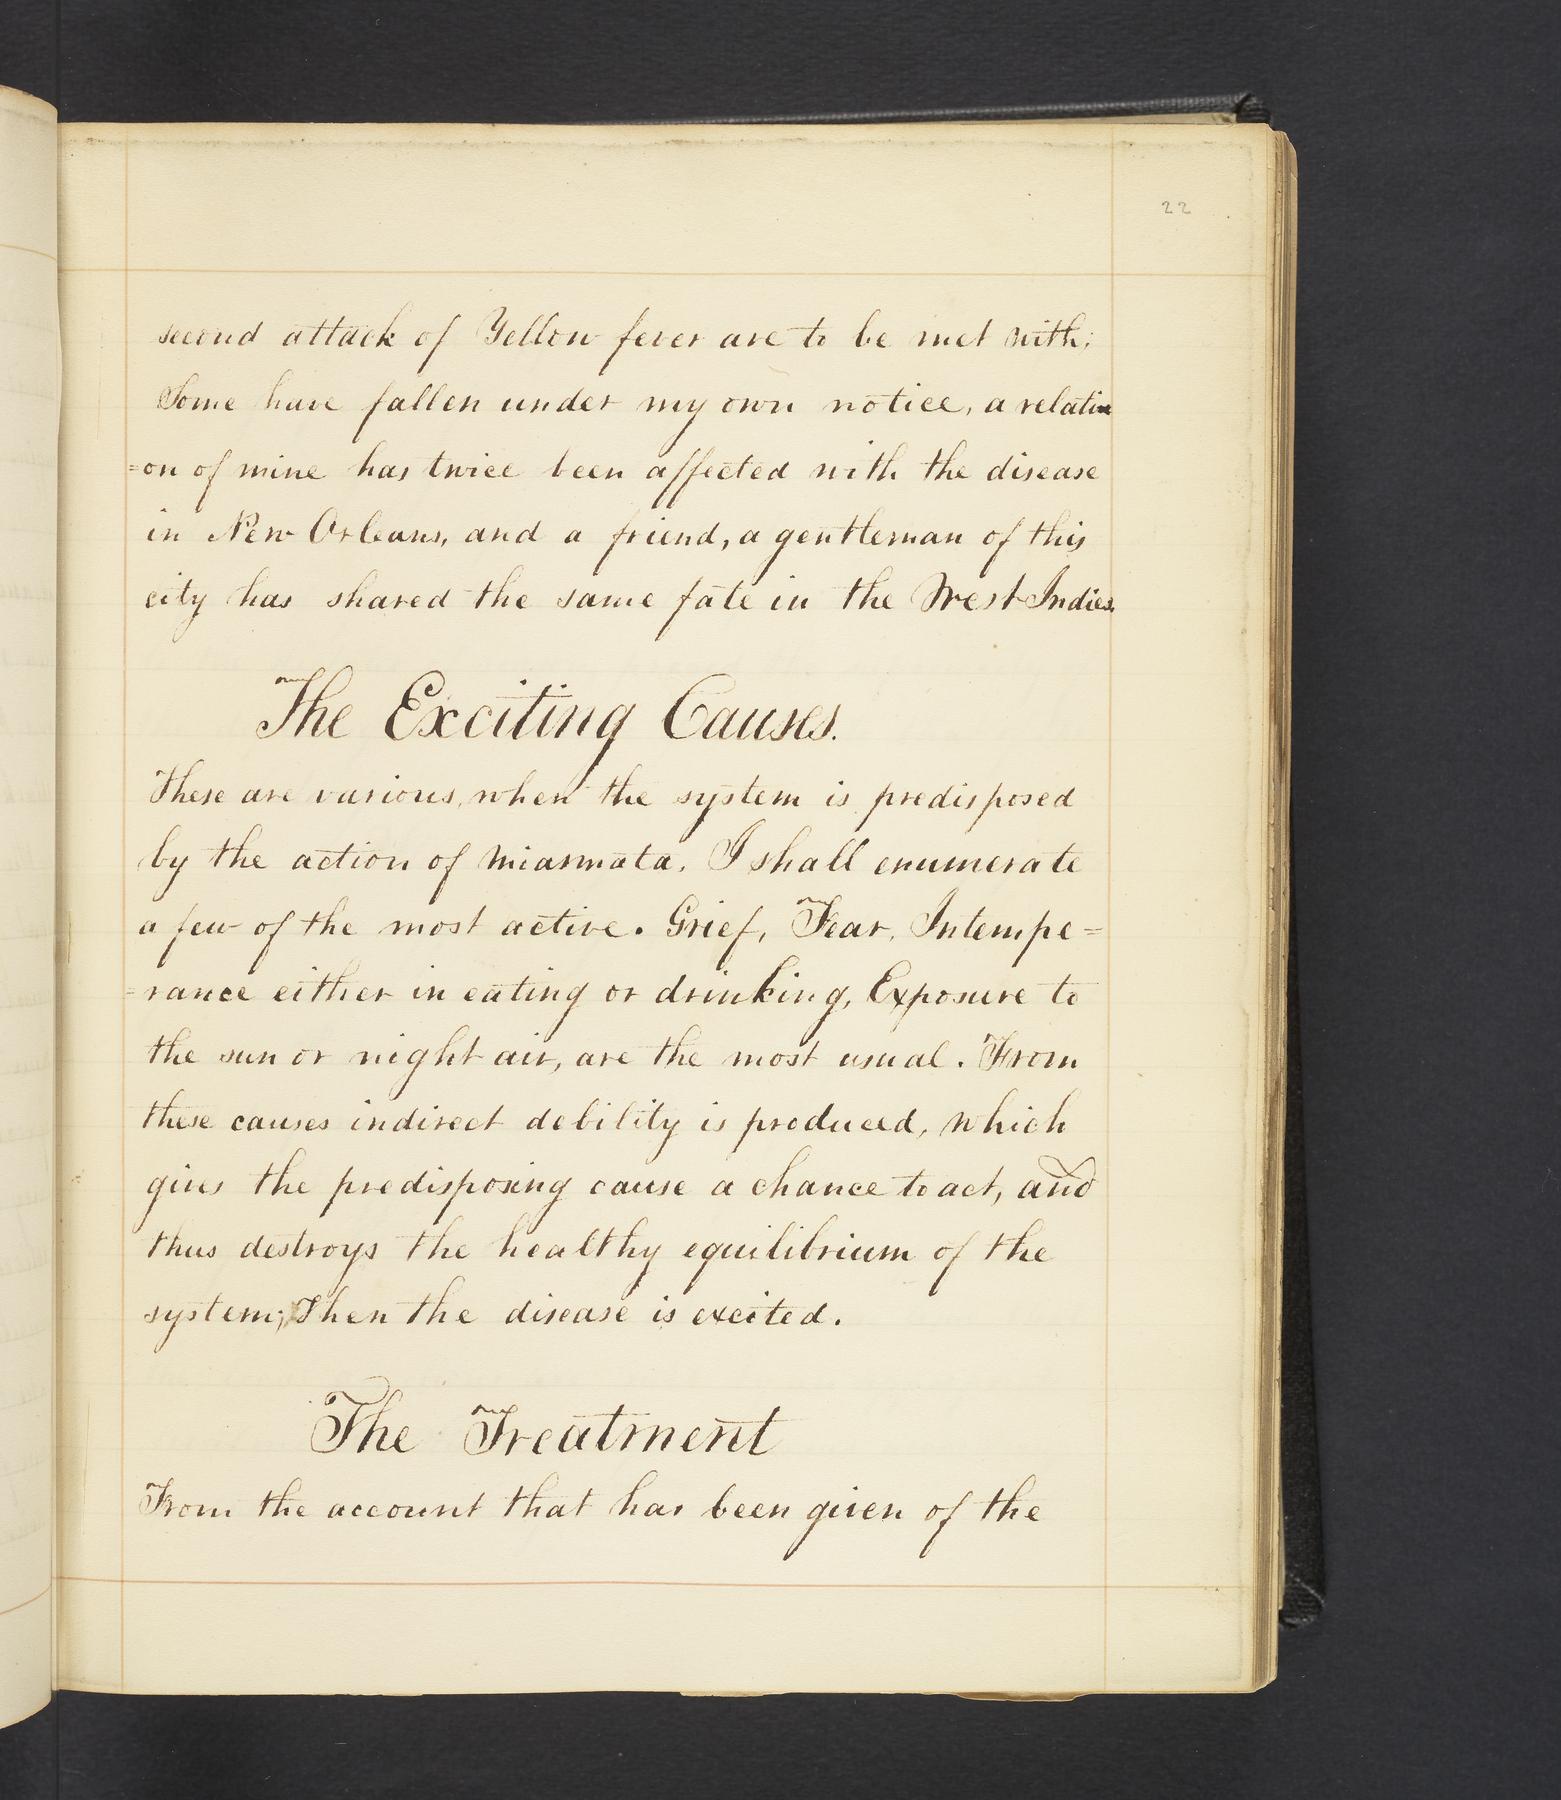 22
second attack of Yellow fever are to be met with;
Some have fallen under my own notice, a relati
=on of mine has twice been affected with the disease
in New Orleans, and a friend, a gentleman of this
city has shared the same fate in the West Indies.
The Exciting Causes.
These are various, when the system is predisposed
by the action of miasmata. I shall enumerate
a few of the most active. Grief, Fear, Intempe=
=rance either in eating or drinking, Exposure to
the sun or night air, are the most usual. From
these causes indirect debility is produced, which
gives the predisposing cause a chance to act, and
thus destroys the healthy equilibrium of the
system; Then the disease is excited.
The Treatment
From the account that has been given of the